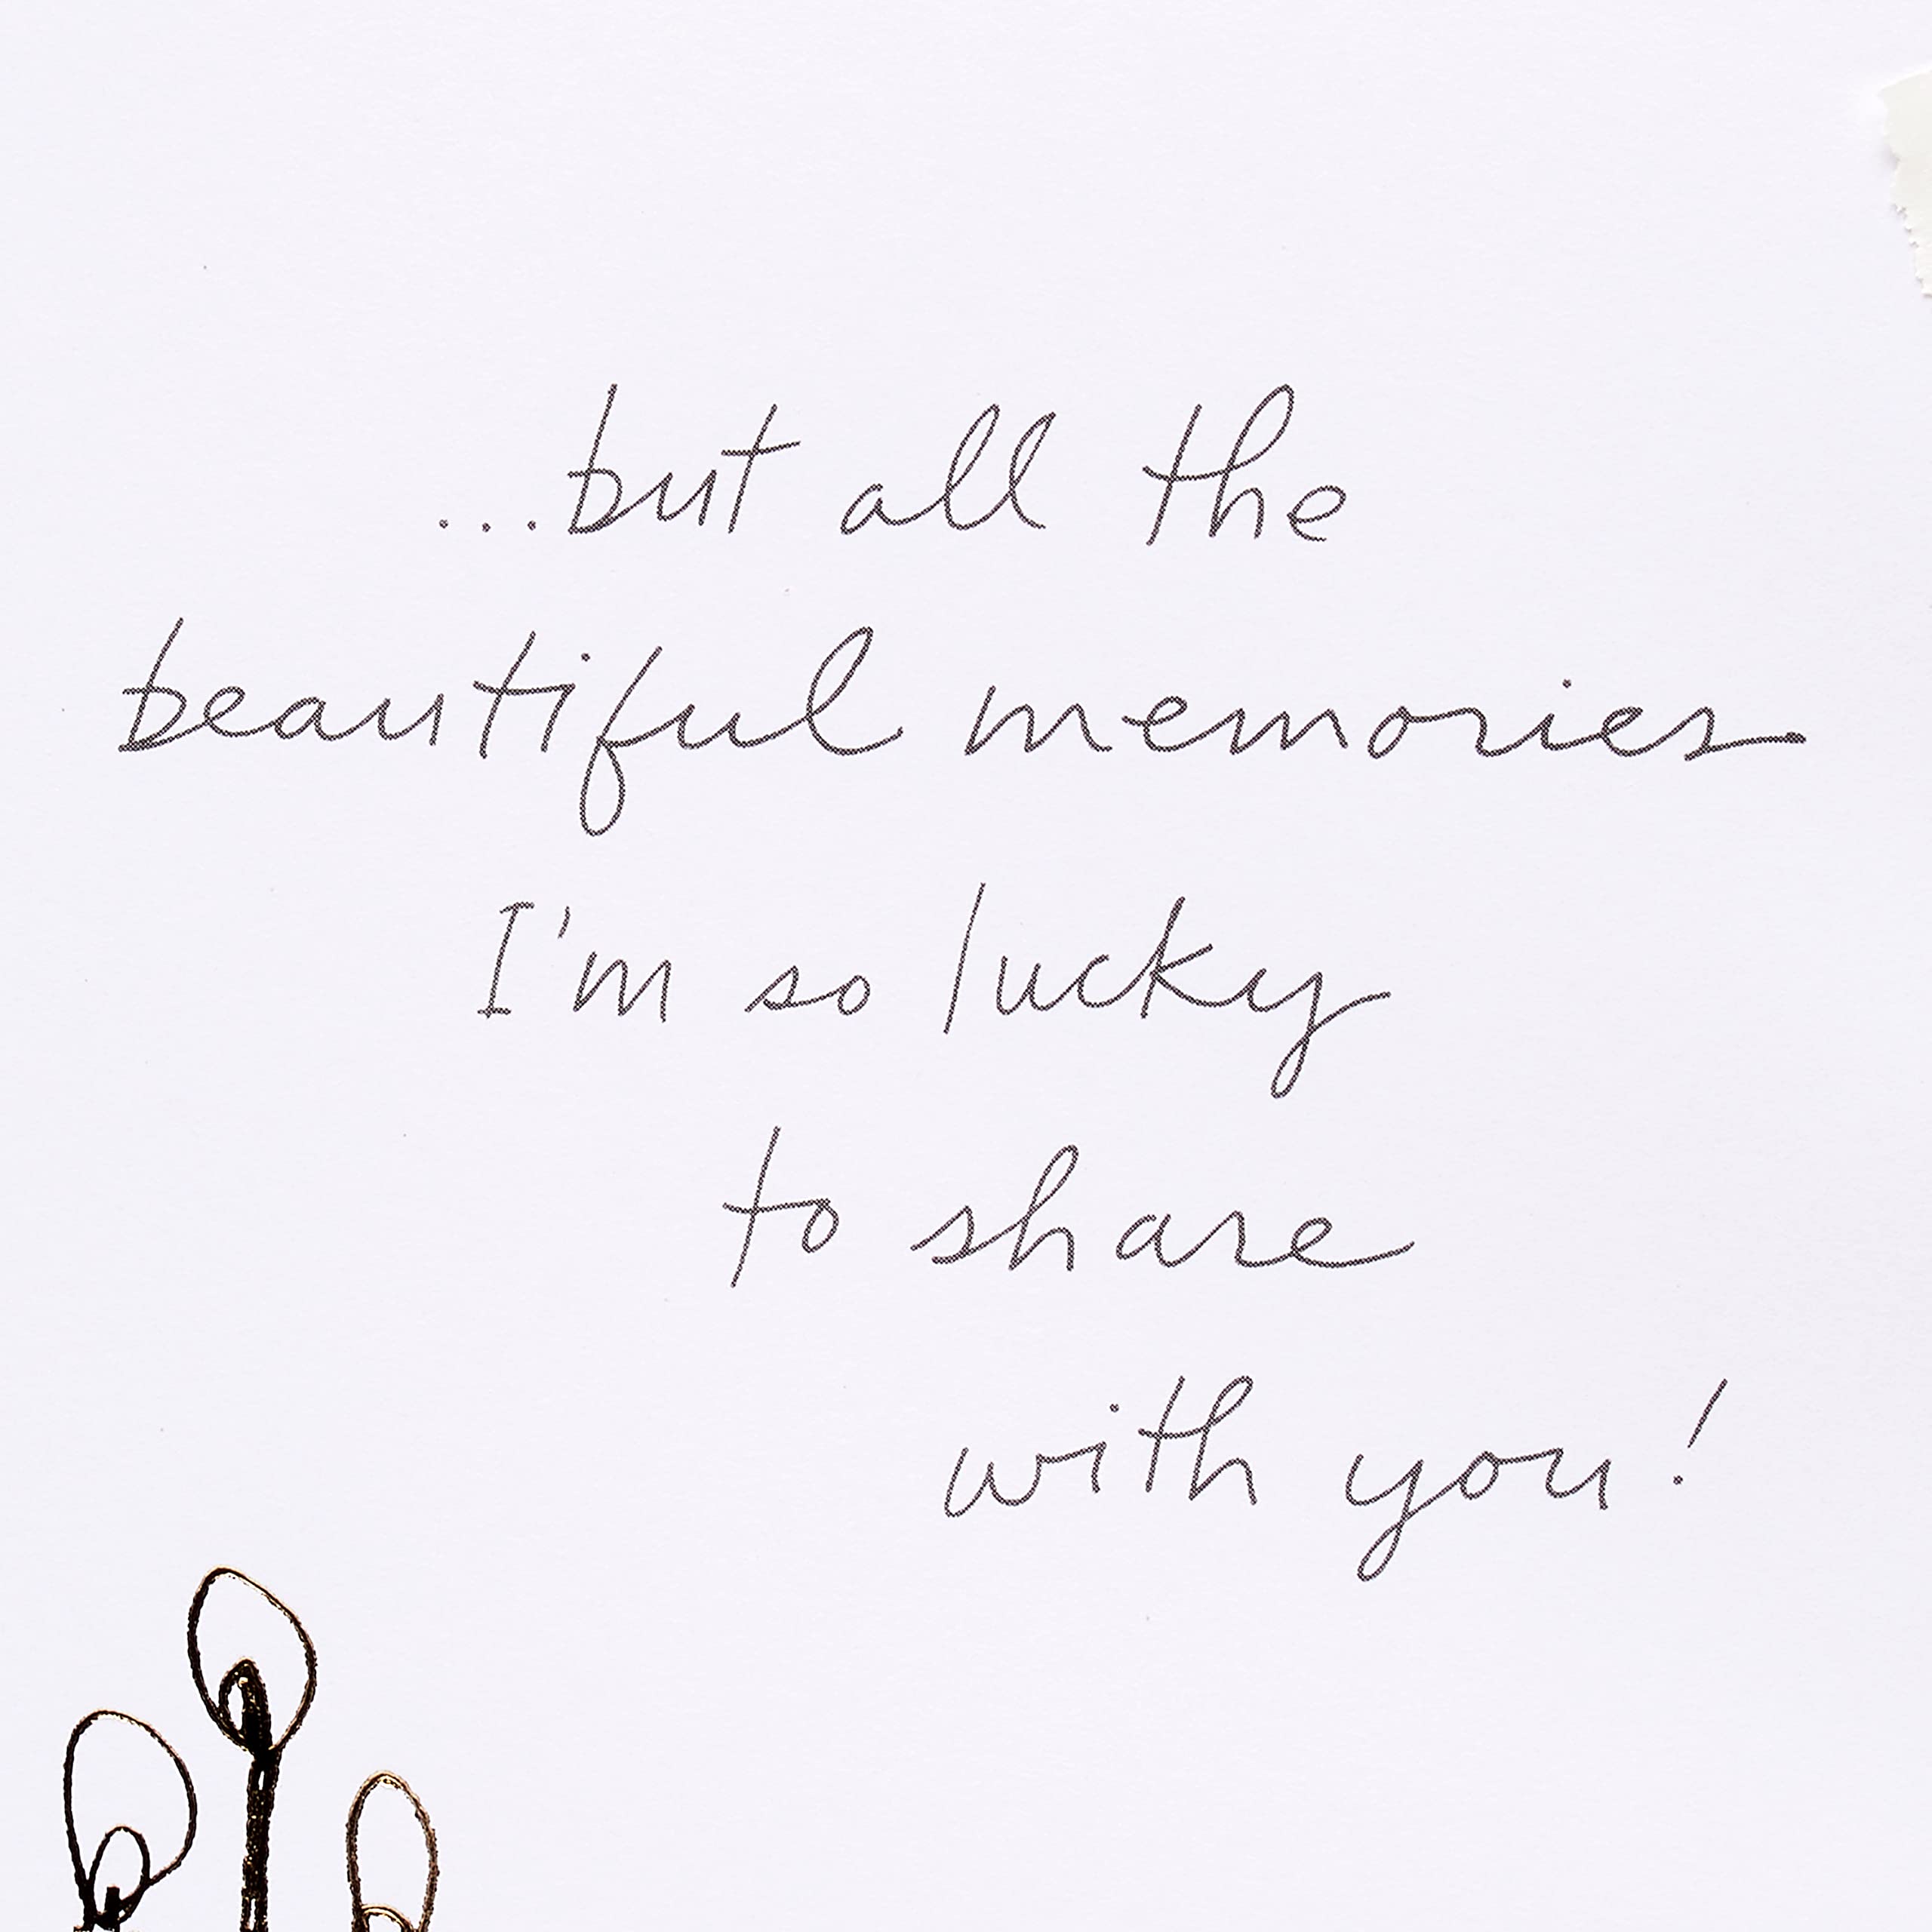 ...but all the
beautiful memories
I'm so lucky
to share
with you!